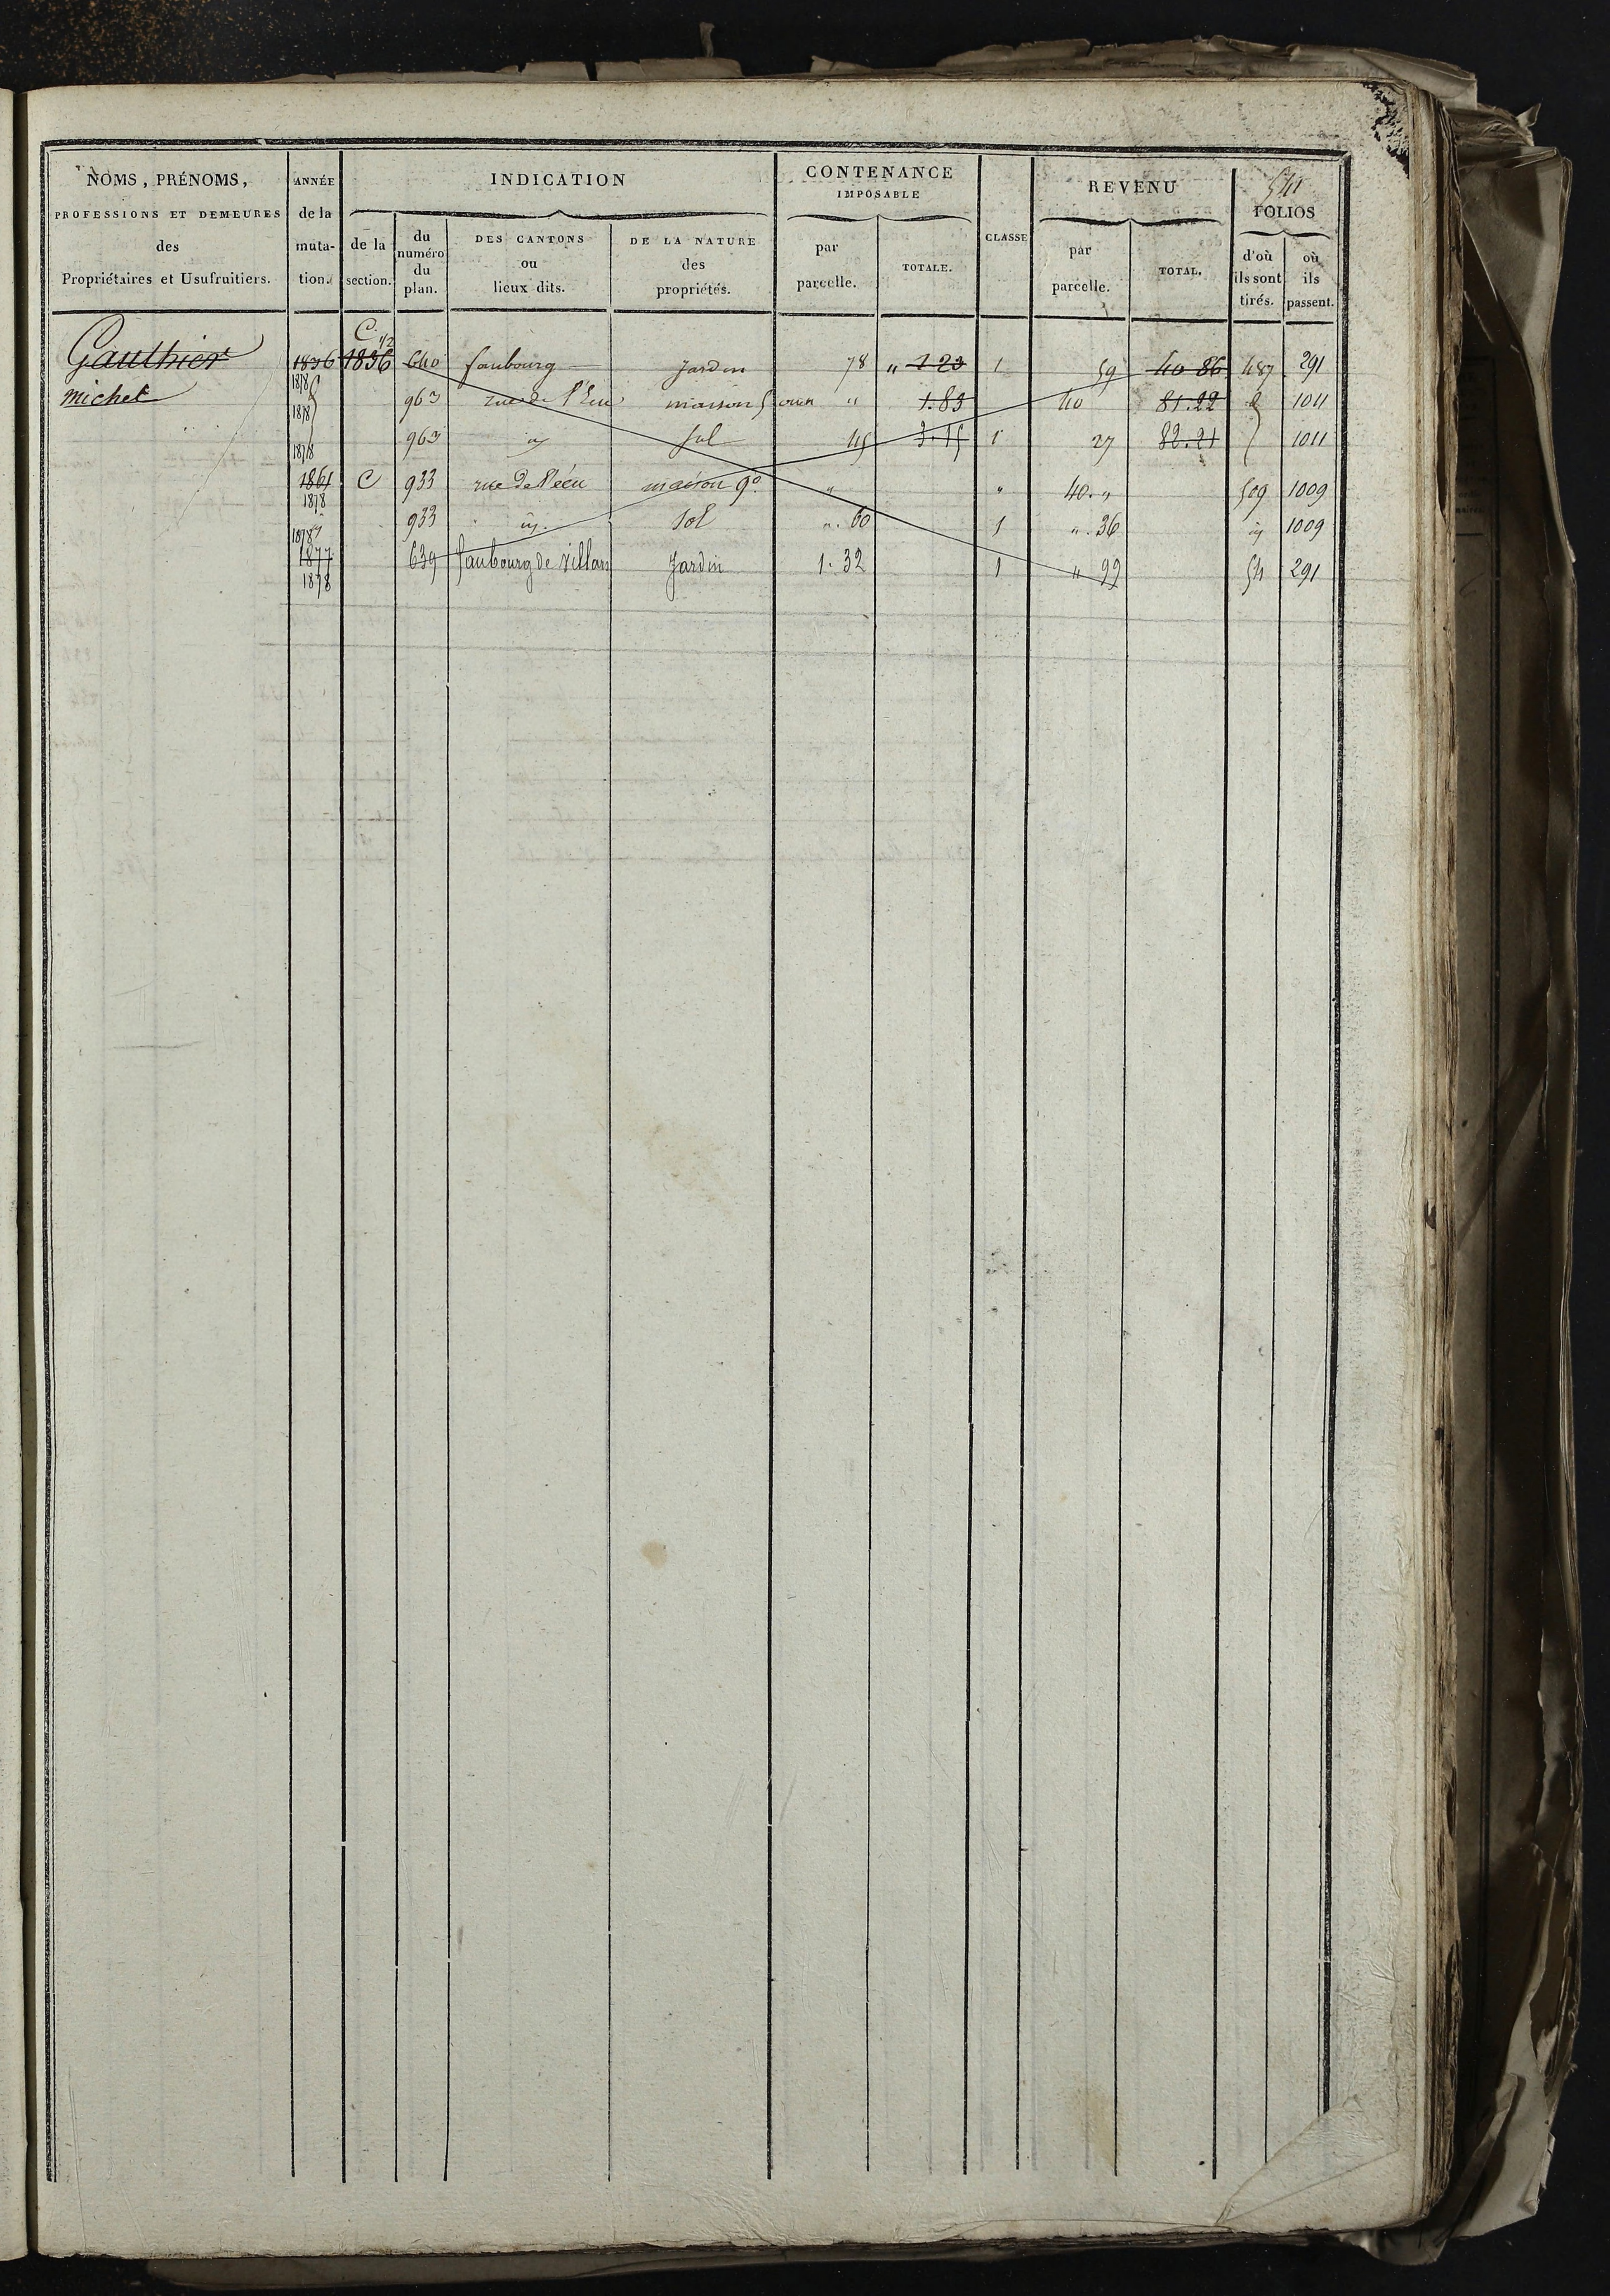 541
NOMS, PRÉNOMS, PROFESSIONS ET DEMEURES des Propriétaires et Usufruitiers.
ANNÉE de la muta-tion.
INDICATION
de la section.
du numéro du plan.
DES CANTONS ou lieux dits.
DE LA NATURE des propriétés.
CONTENANCE IMPOSABLE
par parcelle.
TOTALE.
CLASSE
REVENU
par parcelle.
TOTAL.
FOLIOS
d'où ils sont tirés.
où ils passent.
C. 1/2
Gauthier 1836 1836 640 faubourg Jardin 78 " 1 23 1 59 40 86 487 291
1878
michel 1878 963 rue de l'Ecu maison 5 ouv " 1.83 40 81.22 d 1011
1878 963 id sol 45 3.15 1 27 82.21 1011
1861 C 933 rue de l'écu maison 9e " " 40. " 509 1009
1878
1878 933 id. sol ". 60 1 ". 36 id 1009
1877 639 faubourg de Villars Jardin 1. 32 1 " 99 54 291
1878